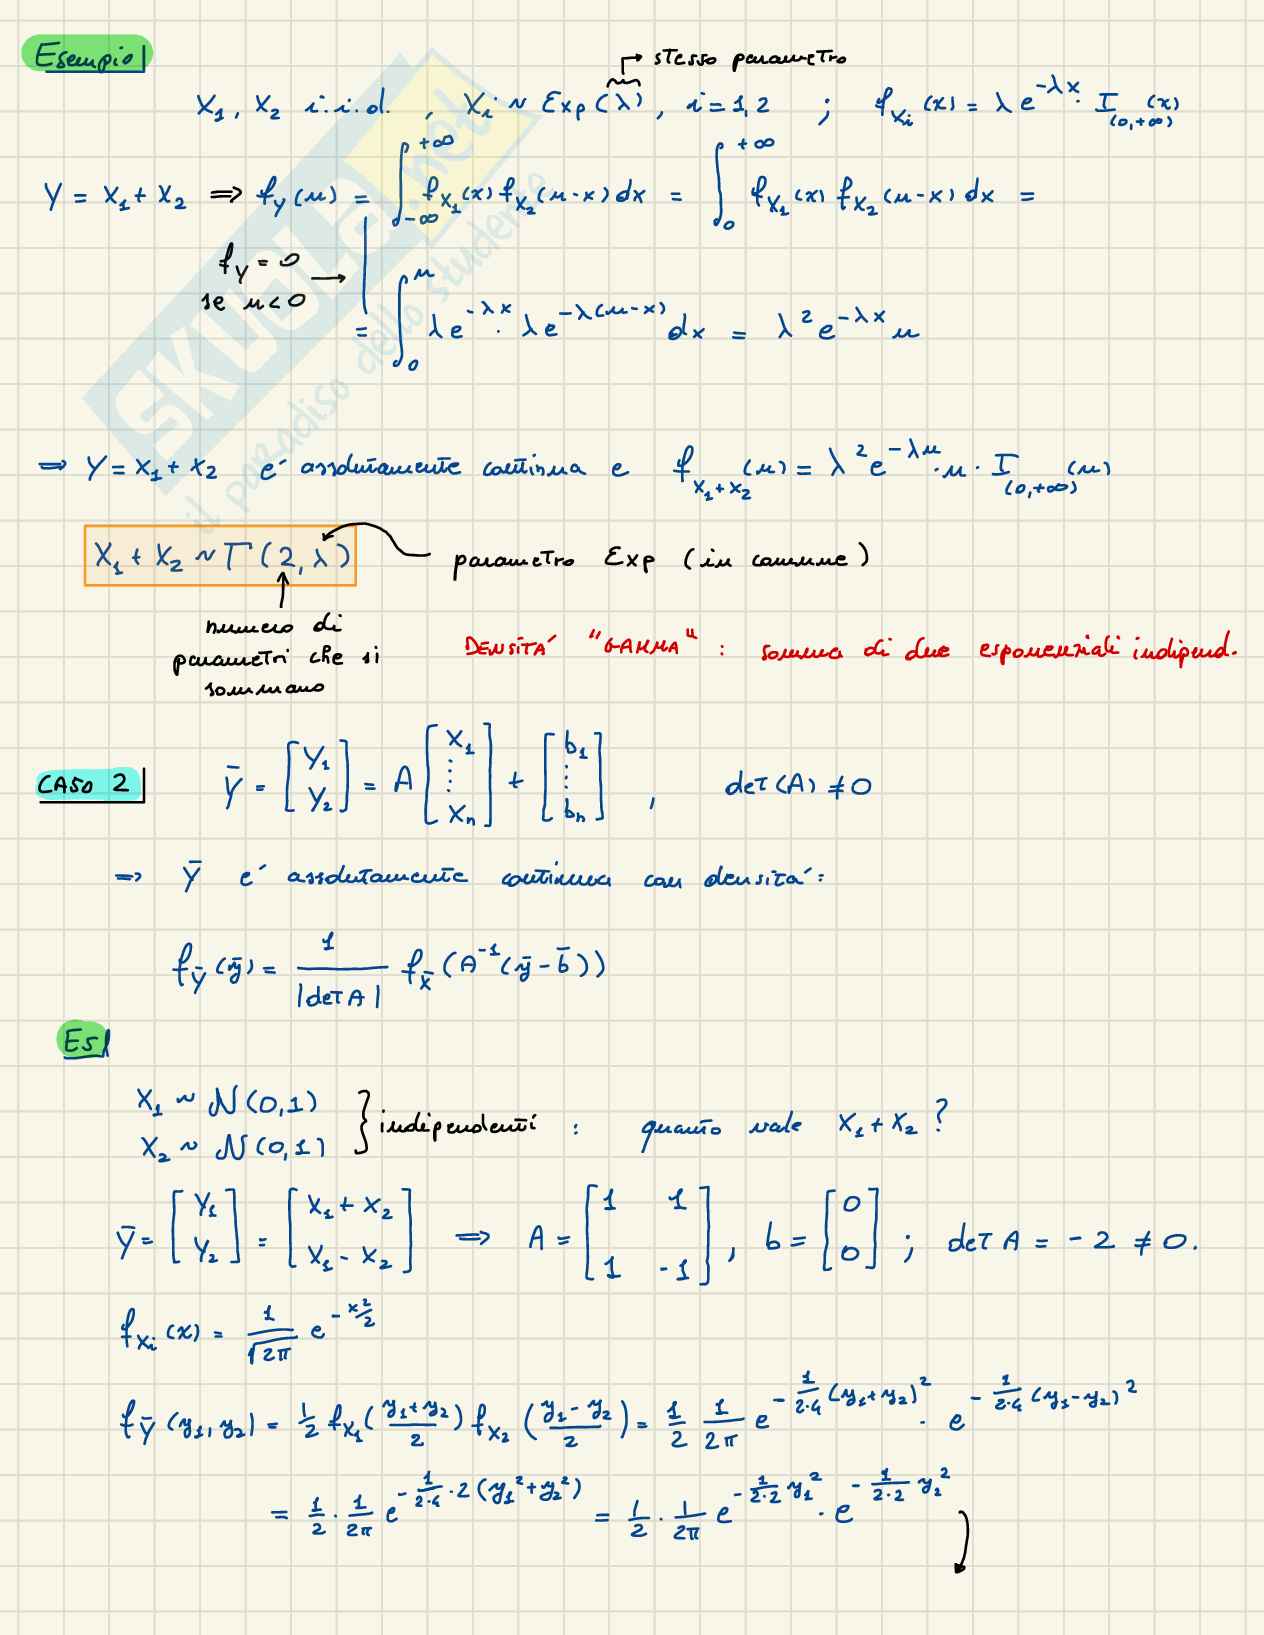 Esempio
stesso parametro
X₁, X₂ i.i.d. , Xᵢ ~ Exp(λ), i=1,2 ; f_{Xᵢ}(x) = λe^{-λx}· I_{(0,+∞)}(x)
Y = X₁+X₂ ⟹ f_Y(u) = ∫_{-∞}^{+∞} f_{X₁}(x) f_{X₂}(u-x) dx = ∫_0^{+∞} f_{X₁}(x) f_{X₂}(u-x) dx =
f_Y = 0
se u<0 →
= ∫_0^u λe^{-λx}· λe^{-λ(u-x)} dx = λ² e^{-λx} u
⟹ Y = X₁+X₂ e' assolutamente continua e f_{X₁+X₂}(u) = λ² e^{-λu}· u · I_{(0,+∞)}(u)
X₁ + X₂ ~ Γ(2,λ)
parametro Exp (in comune)
numero di
parametri che si
sommano
DENSITA' "GAMMA" : somma di due esponenziali indipend.
CASO 2
Ȳ = [Y₁ Y₂] = A [X₁ ⋮ Xₙ] + [b₁ ⋮ bₙ] , det(A) ≠ 0
⟹ Ȳ e' assolutamente continua con densita':
f_Ȳ(ȳ) = 1/|det A| f_X̄(A⁻¹(ȳ-b̄))
Es
X₁ ~ N(0,1)
X₂ ~ N(0,1)
} indipendenti : quanto vale X₁+X₂ ?
Ȳ = [Y₁ Y₂] = [X₁+X₂ X₁-X₂] ⟹ A = [1 1 1 -1] , b = [0 0] ; det A = -2 ≠ 0.
f_{Xᵢ}(x) = 1/√2π e^{-x²/2}
f_Ȳ(y₁,y₂) = 1/2 f_{X₁}((y₁+y₂)/2) f_{X₂}((y₁-y₂)/2) = 1/2 1/2π e^{-1/2·4 (y₁+y₂)²} · e^{-1/2·4 (y₁-y₂)²}
= 1/2 · 1/2π e^{-1/2·4 ·2(y₁²+y₂²)} = 1/2 · 1/2π e^{-1/2·2 y₁²} · e^{-1/2·2 y₂²}
SKUOLA.net
il paradiso dello studente